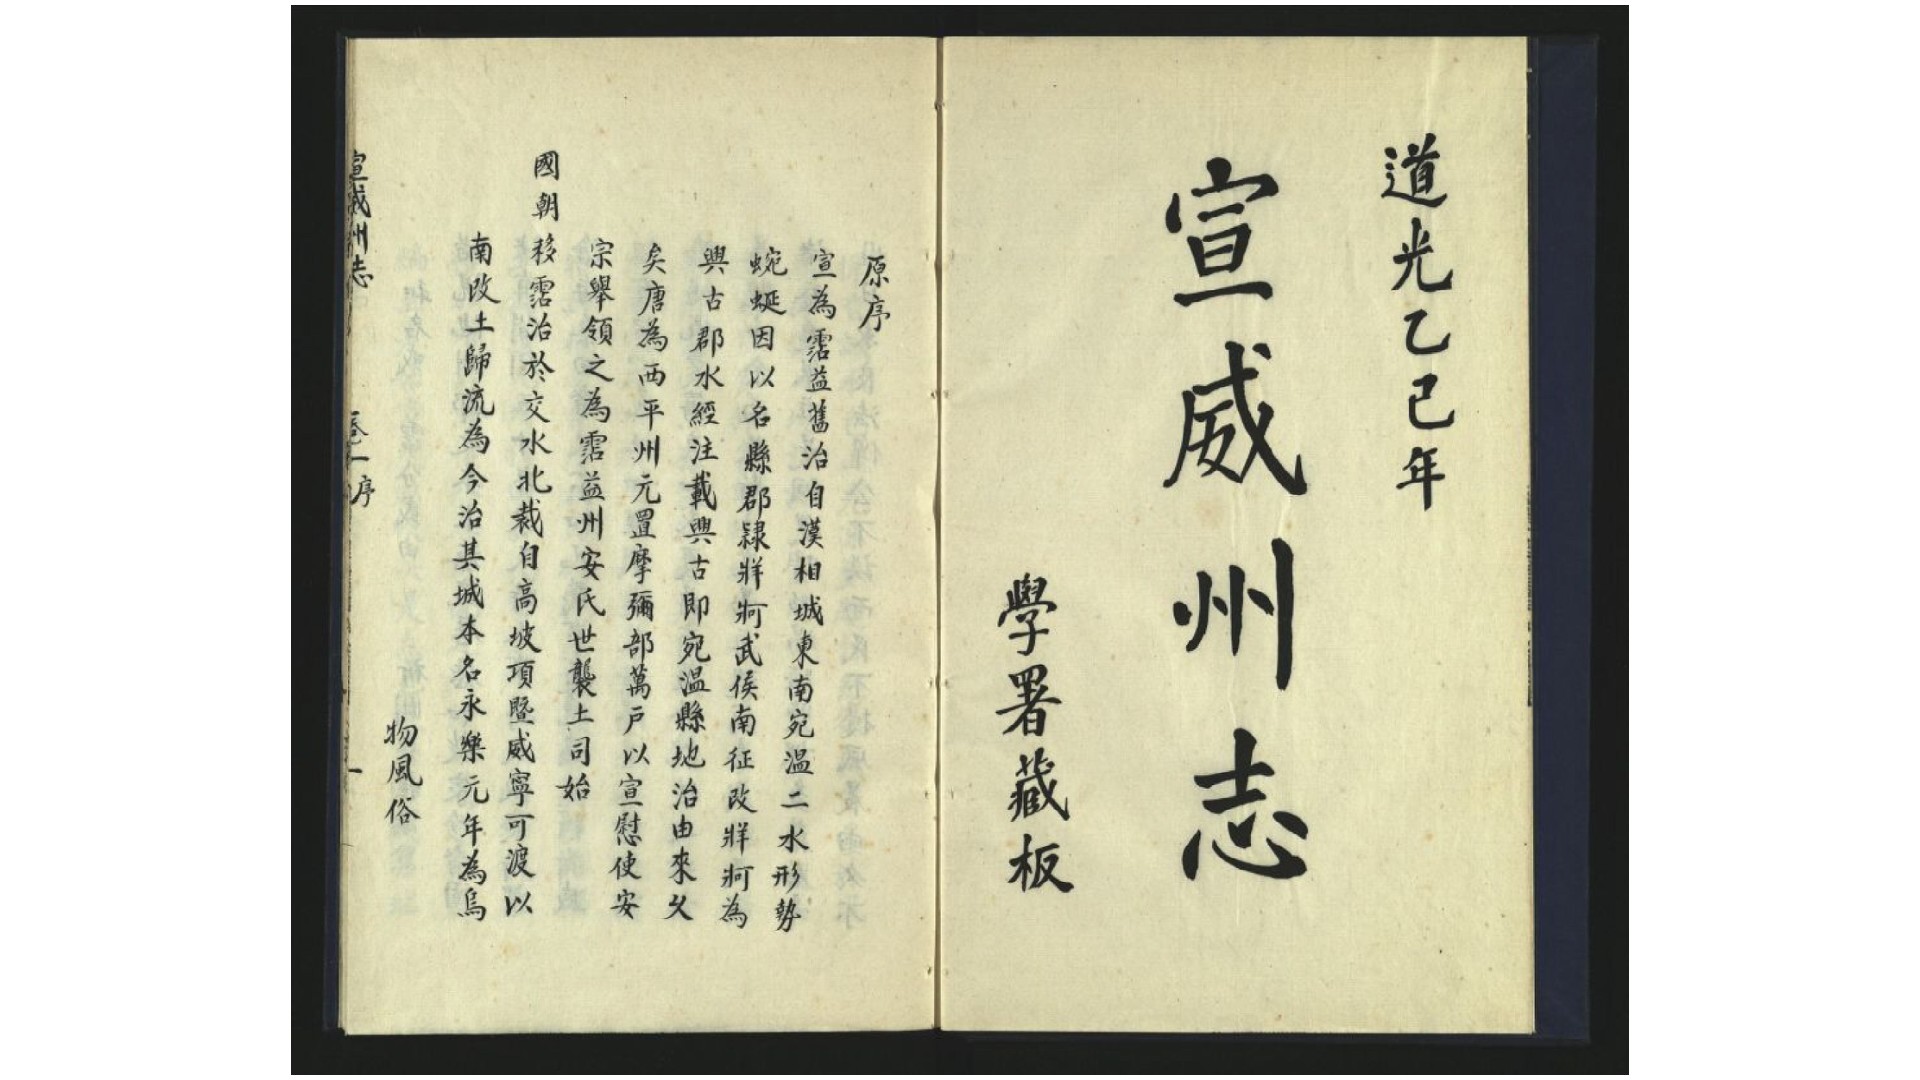 道光乙巳年
宣威州志
學署藏板
原序
宣為霑益舊治自漢相城東南宛溫二水形勢
蜿蜒因以名縣郡隸牂牁武侯南征改牂牁為
興古郡水經注載興古即宛溫縣地治由來久
矣唐為西平州元置摩彌部萬戶以宣慰使安
宗舉領之為霑益州安氏世襲土司始
國朝移霑治於交水北裁自高坡項暨威寧可渡以
南改土歸流為今治其城本名永樂元年為烏
物風俗
宣威州志 卷一序 一